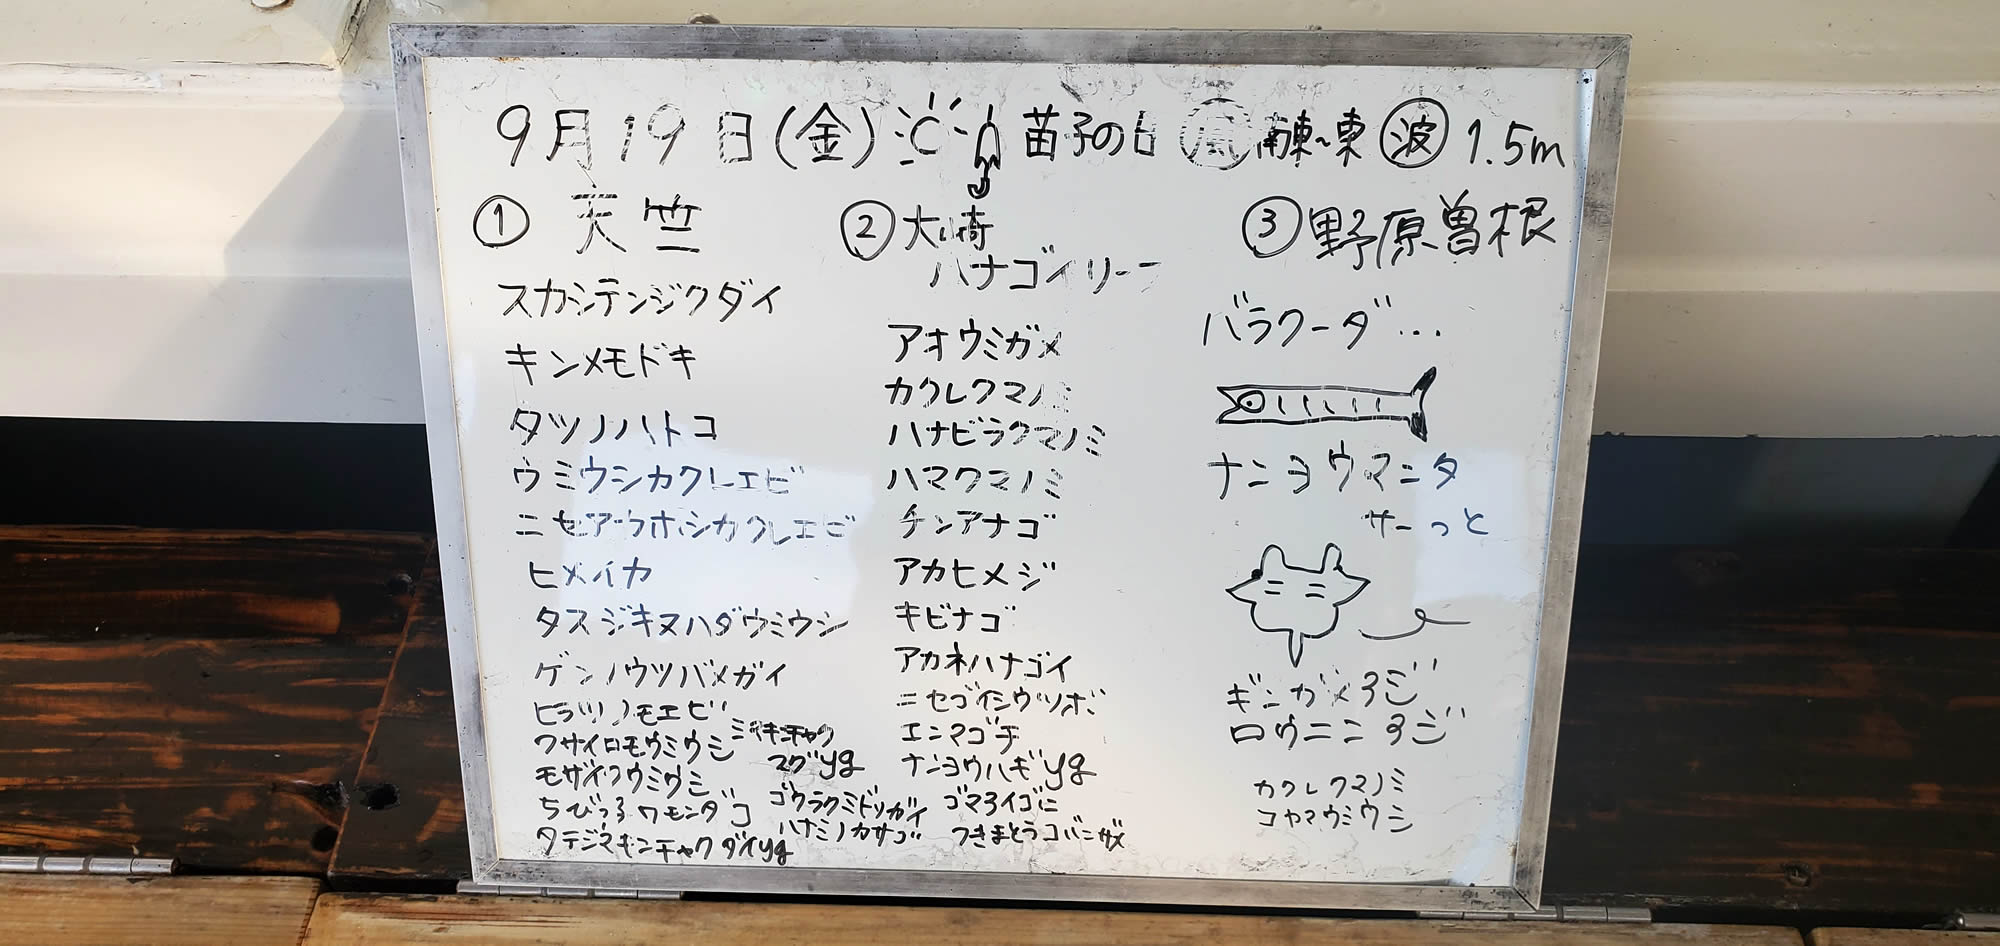 9月19日(金) 苗子の日 風 南東~東 波 1.5m
① 天竺
スカシテンジクダイ
キンメモドキ
タツノハトコ
ウミウシカクレエビ
ニセアカホシカクレエビ
ヒメイカ
タスジキヌハダウミウシ
ゲンノウツバメガイ
ヒラツノモエビ
クサイロモウミウシ
モザイクウミウシ
ちびっ子ワモンダコ
タテジマキンチャクダイyg
キンチャク
スグyg
ゴクラクミドリガイ
ハナミノカサゴ
② 大崎
ハナゴイリーフ
アオウミガメ
カクレクマノミ
ハナビラクマノミ
ハマクマノミ
チンアナゴ
アカヒメジ
キビナゴ
アカネハナゴイ
ニセゴイシウツボ
エンマゴチ
ナンヨウハギyg
ゴマアイゴに
つきまとうコバンザメ
③ 野原曽根
バラクーダ...
ナンヨウマンタ
サーっと
ギンガメアジ
ロウニンアジ
カクレクマノミ
コヤマウミウシ